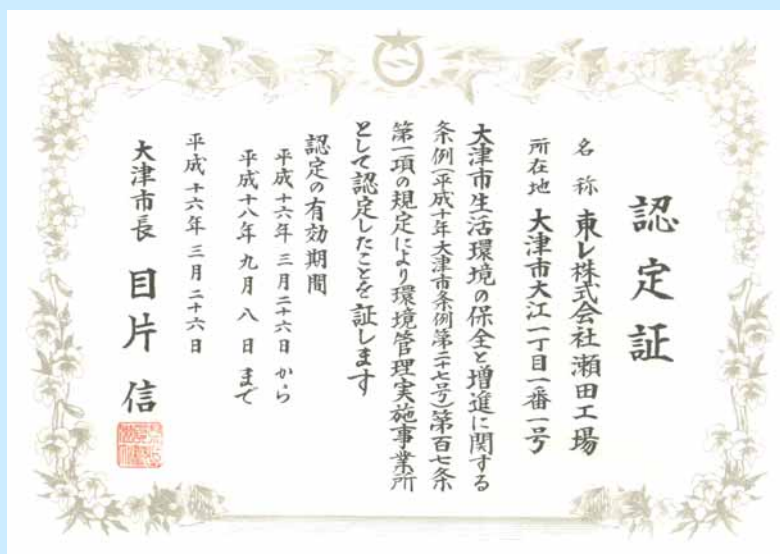 認定証
名称 東レ株式会社瀬田工場
所在地 大津市大江一丁目一番一号
大津市生活環境の保全と増進に関する
条例(平成十年大津市条例第二十七号)第百七条
第一項の規定により環境管理実施事業所
として認定したことを証します
認定の有効期間
平成十六年三月二十六日から
平成十八年九月八日まで
平成十六年三月二十六日
大津市長 目片信